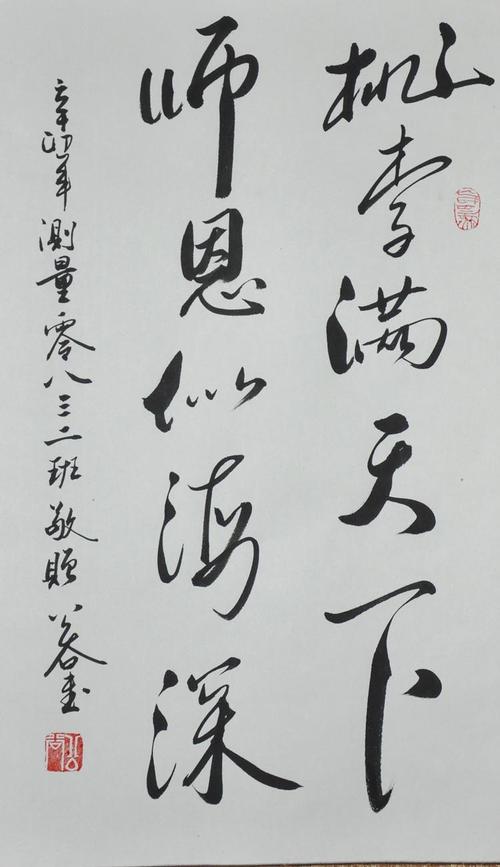 桃李满天下
师恩似海深
辛卯年测量零八三二班敬赠 公尚书